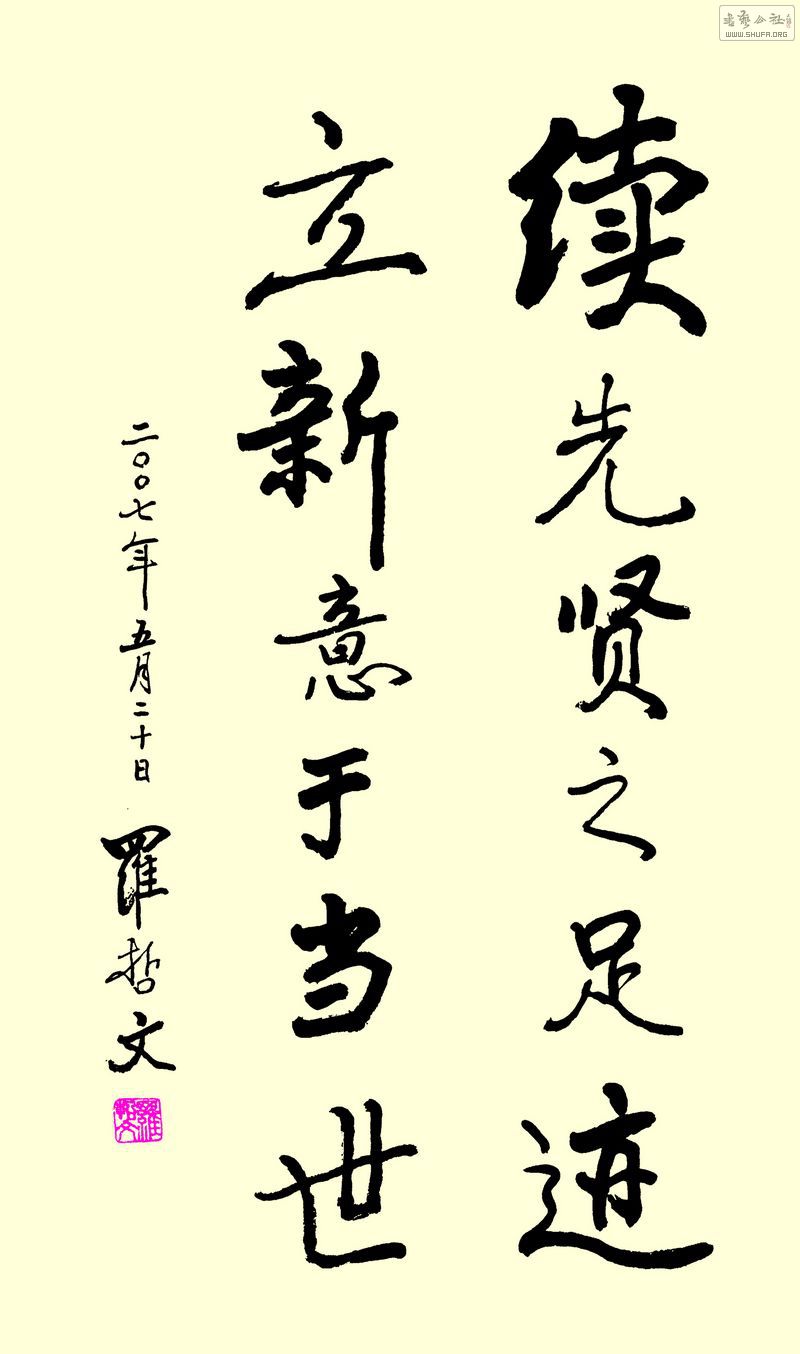 续先贤之足迹
立新意于当世
二〇〇七年五月二十日 羅哲文
書艺公社
WWW.SHUFA.ORG